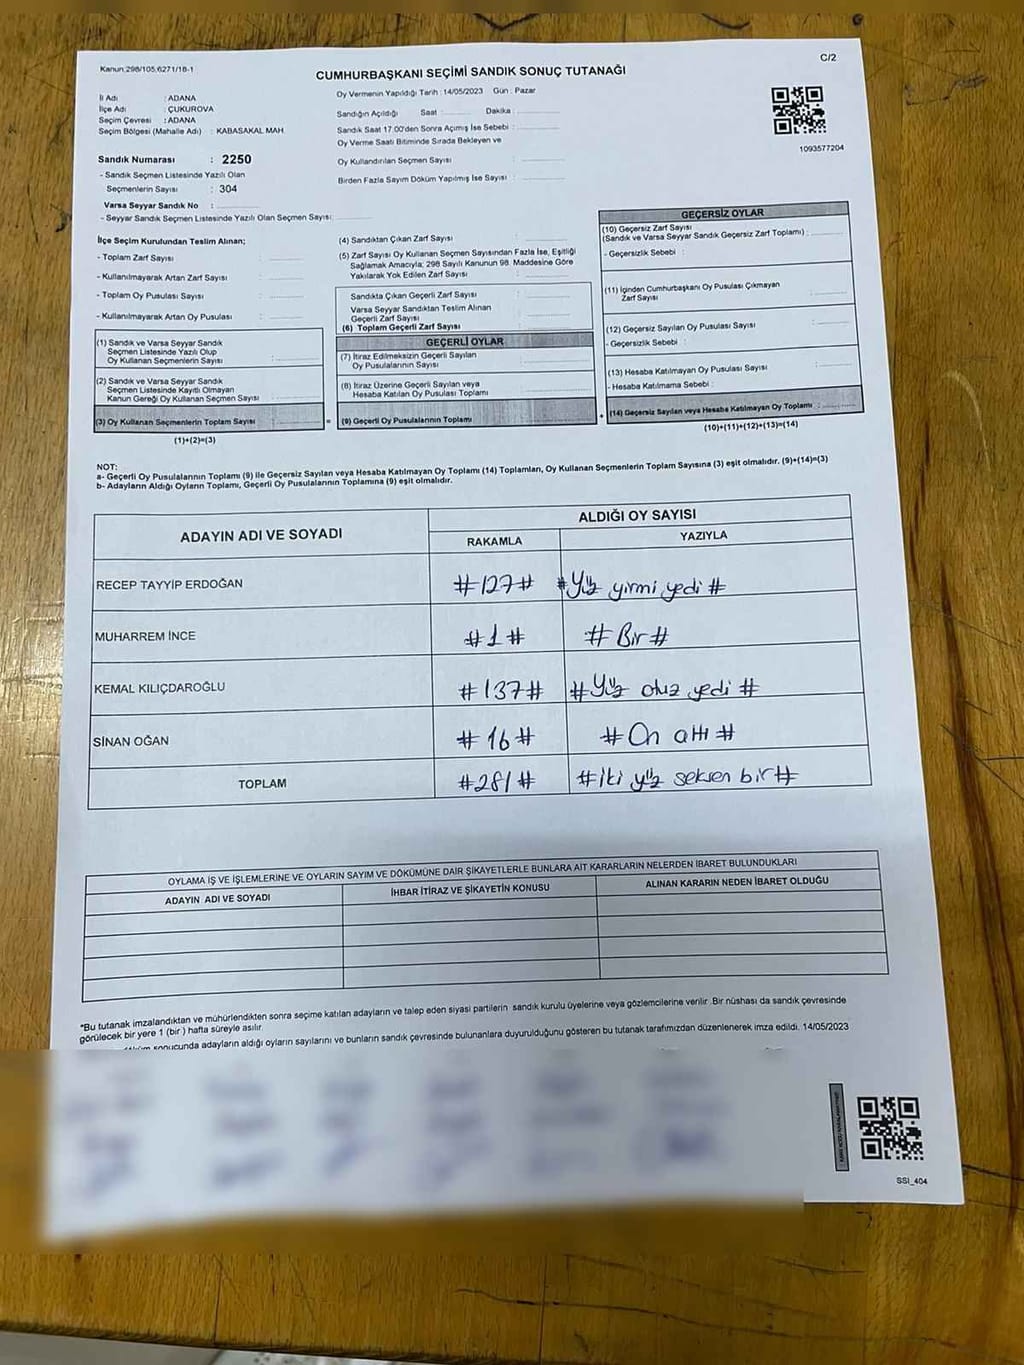 Kanun:298/105,6271/18-1
C/2
CUMHURBAŞKANI SEÇİMİ SANDIK SONUÇ TUTANAĞI
İl Adı : ADANA
İlçe Adı : ÇUKUROVA
Seçim Çevresi : ADANA
Seçim Bölgesi (Mahalle Adı) : KABASAKAL MAH
Oy Vermenin Yapıldığı Tarih : 14/05/2023 Gün : Pazar
Sandığın Açıldığı Saat : Dakika :
Sandık Saat 17.00'den Sonra Açımış İse Sebebi :
Oy Verme Saati Bitiminde Sırada Bekleyen ve
Oy Kullandırılan Seçmen Sayısı :
Birden Fazla Sayım Döküm Yapılmış İse Sayısı :
1093577204
Sandık Numarası : 2250
- Sandık Seçmen Listesinde Yazılı Olan
Seçmenlerin Sayısı : 304
Varsa Seyyar Sandık No :
- Seyyar Sandık Seçmen Listesinde Yazılı Olan Seçmen Sayısı:
İlçe Seçim Kurulundan Teslim Alınan;
- Toplam Zarf Sayısı :
- Kullanılmayarak Artan Zarf Sayısı :
- Toplam Oy Pusulası Sayısı :
- Kullanılmayarak Artan Oy Pusulası :
(1) Sandık ve Varsa Seyyar Sandık
Seçmen Listesinde Yazılı Olup
Oy Kullanan Seçmenlerin Sayısı :
(2) Sandık ve Varsa Seyyar Sandık
Seçmen Listesinde Kayıtlı Olmayan
Kanun Gereği Oy Kullanan Seçmen Sayısı :
(3) Oy Kullanan Seçmenlerin Toplam Sayısı :
(1)+(2)=(3)
(4) Sandıktan Çıkan Zarf Sayısı :
(5) Zarf Sayısı Oy Kullanan Seçmen Sayısından Fazla İse, Eşitliği
Sağlamak Amacıyla; 298 Sayılı Kanunun 98. Maddesine Göre
Yakılarak Yok Edilen Zarf Sayısı :
Sandıkta Çıkan Geçerli Zarf Sayısı :
Varsa Seyyar Sandıktan Teslim Alınan
Geçerli Zarf Sayısı :
(6) Toplam Geçerli Zarf Sayısı :
GEÇERLİ OYLAR
(7) İtiraz Edilmeksizin Geçerli Sayılan
Oy Pusulalarının Sayısı :
(8) İtiraz Üzerine Geçerli Sayılan veya
Hesaba Katılan Oy Pusulası Toplamı :
= (9) Geçerli Oy Pusulalarının Toplamı
GEÇERSİZ OYLAR
(10) Geçersiz Zarf Sayısı
(Sandık ve Varsa Seyyar Sandık Geçersiz Zarf Toplamı) :
- Geçersizlik Sebebi :
(11) İçinden Cumhurbaşkanı Oy Pusulası Çıkmayan
Zarf Sayısı :
(12) Geçersiz Sayılan Oy Pusulası Sayısı :
- Geçersizlik Sebebi :
(13) Hesaba Katılmayan Oy Pusulası Sayısı :
- Hesaba Katılmama Sebebi :
+ (14) Geçersiz Sayılan veya Hesaba Katılmayan Oy Toplamı :
(10)+(11)+(12)+(13)=(14)
NOT:
a- Geçerli Oy Pusulalarının Toplamı (9) ile Geçersiz Sayılan veya Hesaba Katılmayan Oy Toplamı (14) Toplamları, Oy Kullanan Seçmenlerin Toplam Sayısına (3) eşit olmalıdır. (9)+(14)=(3)
b- Adayların Aldığı Oyların Toplamı, Geçerli Oy Pusulalarının Toplamına (9) eşit olmalıdır.
ADAYIN ADI VE SOYADI
ALDIĞI OY SAYISI
RAKAMLA YAZIYLA
RECEP TAYYİP ERDOĞAN #127# #Yüz yirmi yedi#
MUHARREM İNCE #1# #Bir#
KEMAL KILIÇDAROĞLU #137# #Yüz otuz yedi#
SİNAN OĞAN #16# #On altı#
TOPLAM #281# #İki yüz seksen bir#
OYLAMA İŞ VE İŞLEMLERİNE VE OYLARIN SAYIM VE DÖKÜMÜNE DAİR ŞİKAYETLERLE BUNLARA AİT KARARLARIN NELERDEN İBARET BULUNDUKLARI
ADAYIN ADI VE SOYADI İHBAR İTİRAZ VE ŞİKAYETİN KONUSU ALINAN KARARIN NEDEN İBARET OLDUĞU
*Bu tutanak imzalandıktan ve mühürlendikten sonra seçime katılan adayların ve talep eden siyasi partilerin sandık kurulu üyelerine veya gözlemcilerine verilir .Bir nüshası da sandık çevresinde
görülecek bir yere 1 (bir ) hafta süreyle asılır.
sonucunda adayların aldığı oyların sayılarını ve bunların sandık çevresinde bulunanlara duyurulduğunu gösteren bu tutanak tarafımızdan düzenlenerek imza edildi. 14/05/2023
SSI_404